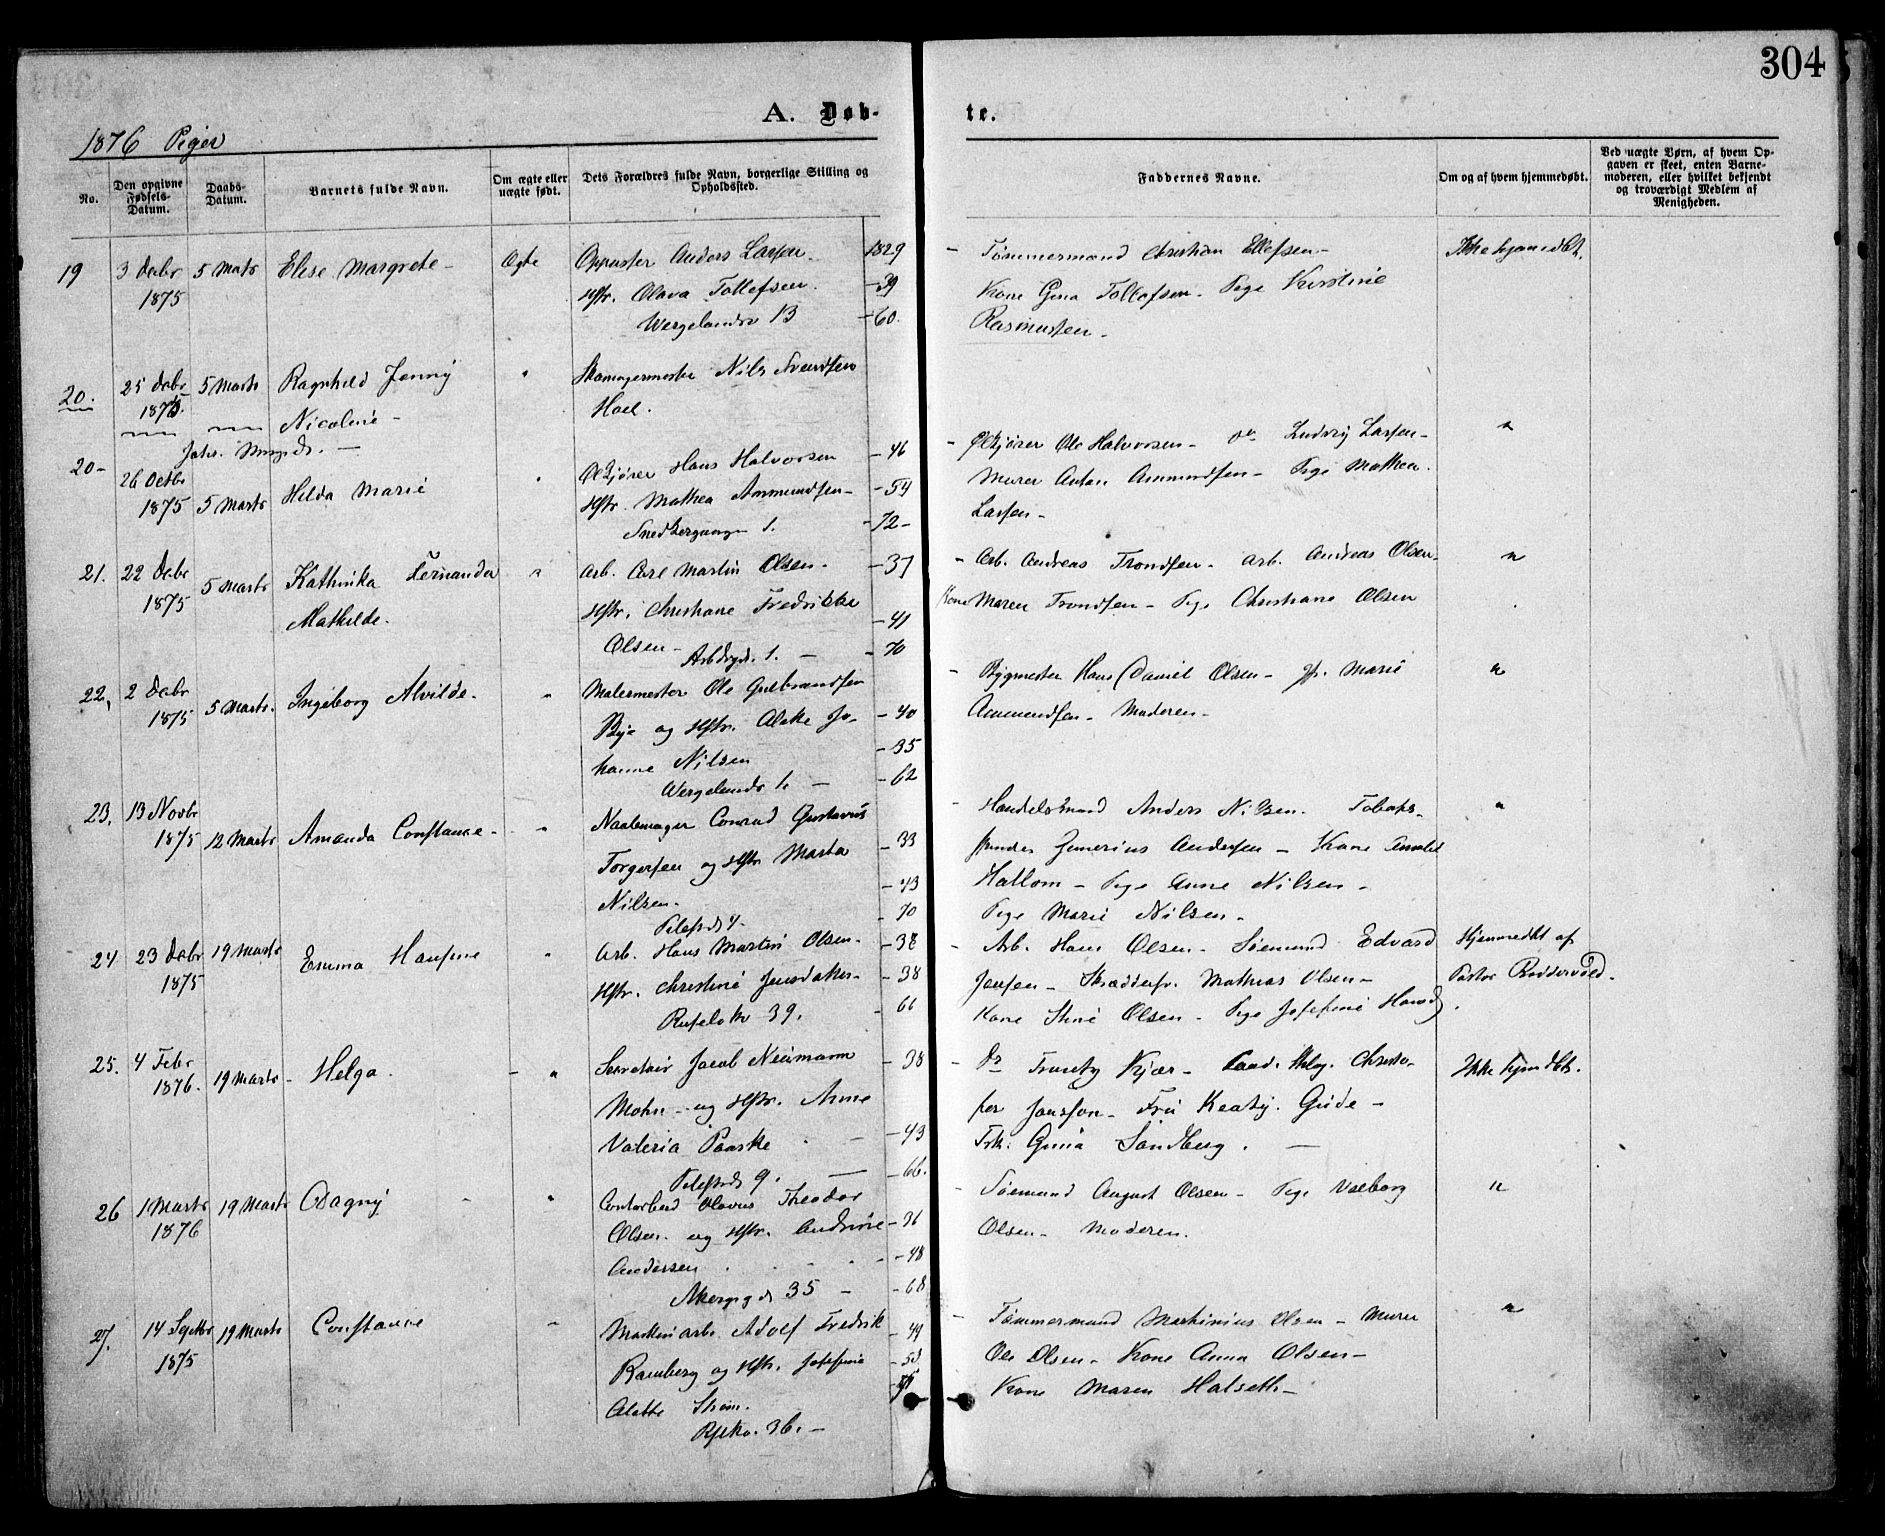 304
A. Døb-
te.
1876 Piger
No.
Den opgivne Fødsels-Datum.
Daabs-Datum.
Barnets fulde Navn.
Om ægte eller uægte født.
Dets Forældres fulde Navn, borgerlige Stilling og Opholdssted.
Faddernes Navne.
Om og af hvem hjemmedøbt.
Ved uægte Børn, af hvem Opgaven er skeet, enten Barnemoderen, eller hvilket bekjendt og troværdigt Medlem af Menigheden.
19 3 Decbr 5 Marts Elise Margrete - Ægte Anders Larsen - 1829 - Tømmermand Christian Ellefsen - Ikke hjemmedbt.
1875 Hstr. Olava Tollefsen. - 39 Kone Gina Tollefsen - Pige Kirstine
Wergelandsv 13 - 60. Rasmussen -
20. 25 Decbr 5 Marts Ragnhild Jenny " Skomagermester Nils Svendsen
1875. Nicoline - Hoel.
20- 26 Octbr Ølkjører Hans Halvorsen - 46 - Ølkjører Ole Halvorsen - do Ludvig Larsen - "
1875 5 Marts Hilda Marie " Hstr. Mathea Ammundsen - - 54 Murer Anton Ammundsen - Pige Mathea
Snedkergangen 1. - 72 - Larsen -
21. 22 Decbr 5 Marts Kathinka Fernanda " Arb. Carl Martin Olsen - - 37 - Arb. Andreas Trondsen - Arb. Andreas Olsen - "
1875 Mathilde. Hstr. Christiane Fredrikke - 41 Kone Maren Trondsen - Pige Christiane Olsen
Olsen - Arbdsgd. 1. - - 70
22, 2 Decbr 5 Marts. Ingeborg Alvilde - " Malermester Ole Gulbrandsen - Bygmester Hans Daniel Olsen - Marie "
1875 Bye og Hstr. Alette Jo- - 40 Ammundsen - Moderen -
hanne Nilsen - 35
Wergelandsv 1. - - 62
23, 13 Novbr Naalemager Conrad Gustavus - Handelsmand Anders Nilsen. Tobaks- "
1875 12 Marts Amanda Constance - " Torgersen og Hstr Marta - 33 spinder Andersen - Kone
- 43 Hallom - Pige Anne Nilsen -
Nilsen. - Pilestrd 4. - 70 Pige Marie Nilsen -
24 23 Decbr 19 Marts Emma Hansine " Arb. Hans Martin Olsen - - 38 - Arb. Hans Olsen - Sømand Edvard Hjemmedbt af
1875 Hstr. Christine - 38 Jensen - Skræddersv. Mathias Olsen - Pastor
39. - 66 Kone Stine Olsen - Pige Josefine
25. 4 Febr 19 Marts - Helga. - " Secretair Jacob Neumann - 38 - Dr Kjær - Cand. theol. Christo- Ikke hjmdbt.
1876. Mohn - og Hstr. Anne fer Jansson - Fru Gude -
Valeria Paaske - - 43 Frk. Sandberg. -
Pilestrd 9. - - 66.
26 1 Marts 19 Marts Dagny - " Contorbud Olavus Theodor - Sømand August Olsen - Pige Valborg "
1876 Olsen - og Hstr. Andrine - 36 Olsen - Moderen.
Andersen - 48
Akersgd 35 - - 68
27. 14 Septbr 19 Marts Constance " Maskinarb. Adolf Fredrik - 49 - Tømmermand Martinius Olsen - Murer "
1875 Ramberg og Hstr. Josefine - 53 Ole Olsen - Kone Anna Olsen -
Alette Strøm. - 75 Kone Maren Halseth -
36. -